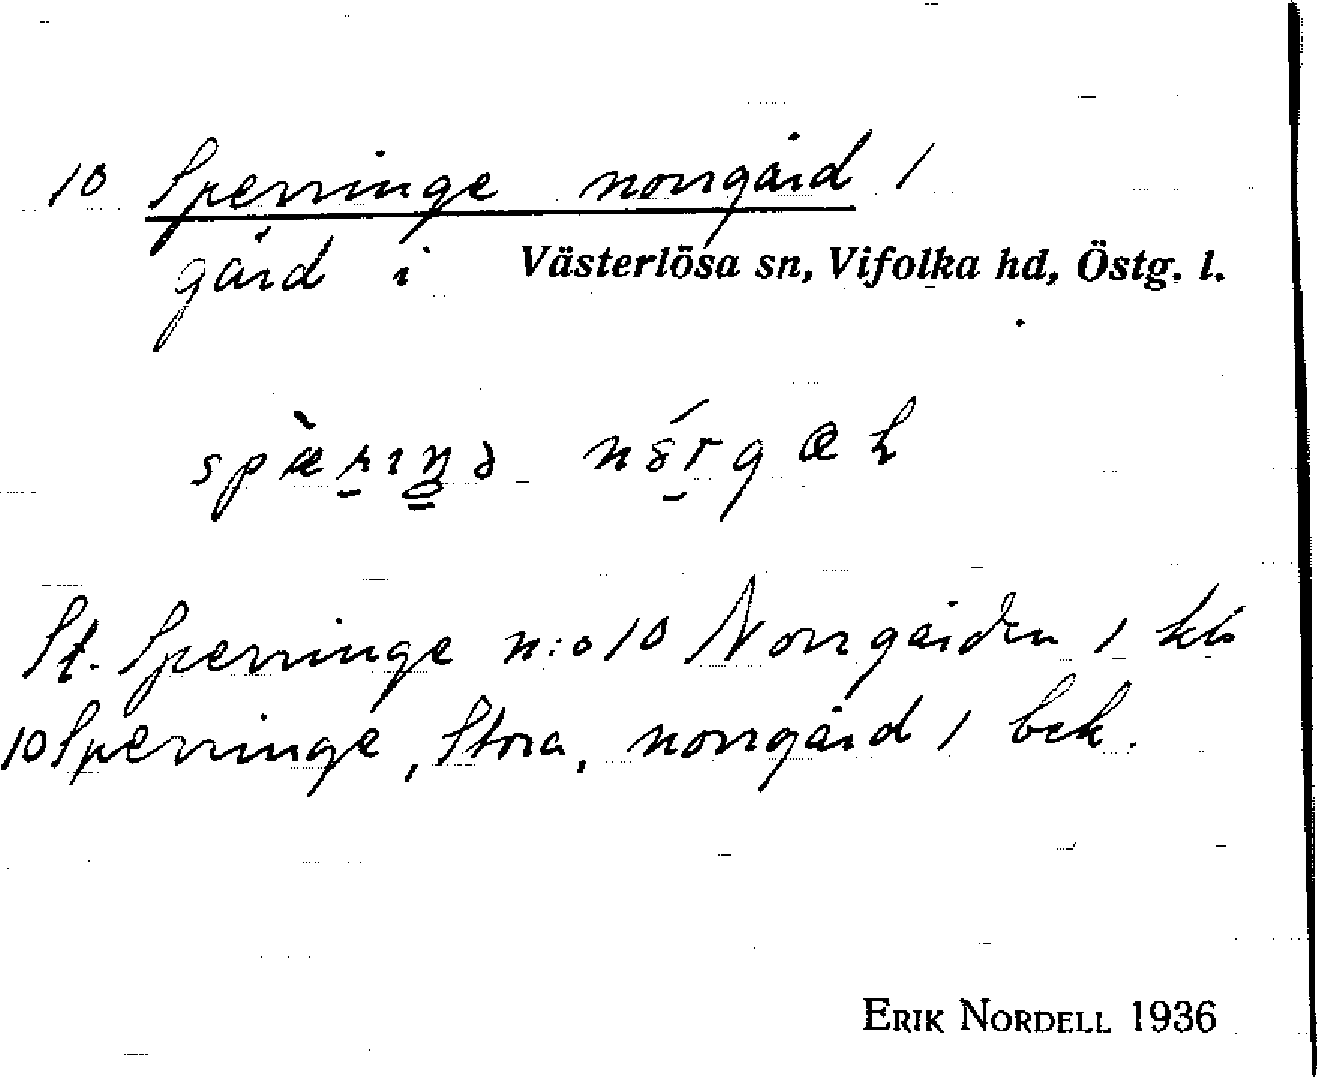 10 Sperringe norrgård 1
gård i Västerlösa sn, Vifolka hd, Östg. l.
St. Sperringe n:o 10 Norrgården 1 kb
10 Sperringe, Stora, norrgård 1 bek.
ERIK NORDELL 1936